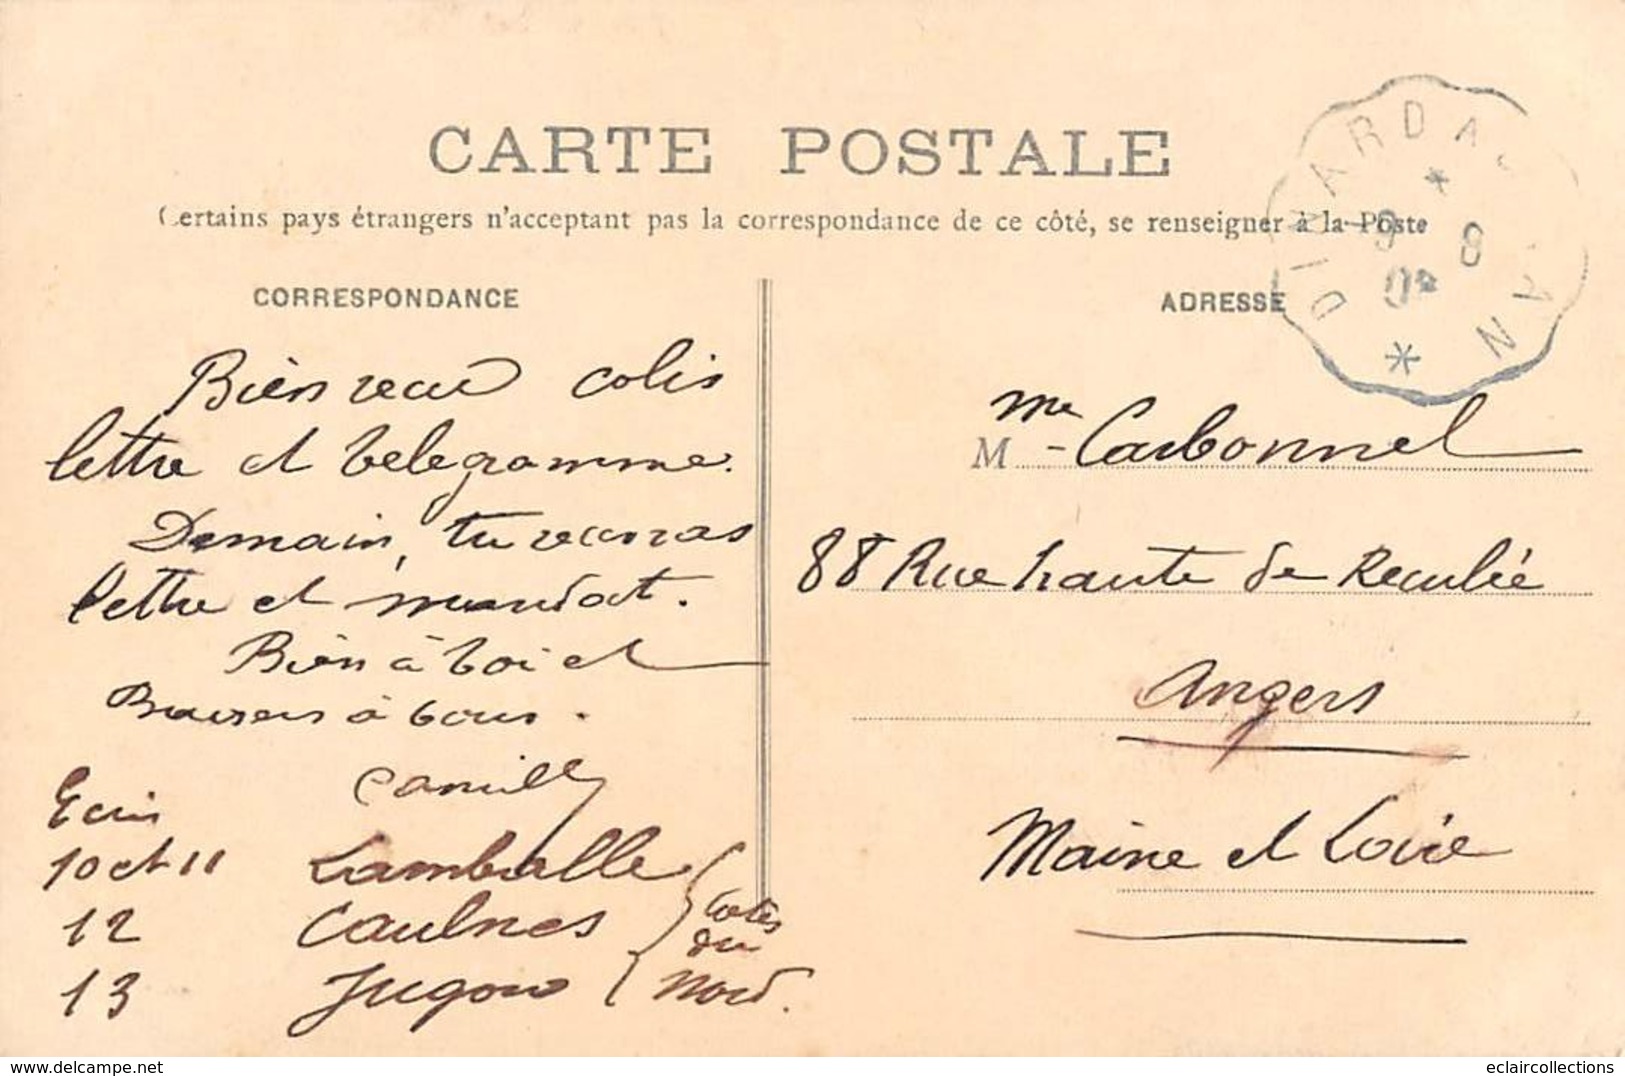 CARTE POSTALE
Certains pays étrangers n'acceptent pas la correspondance de ce côté, se renseigner à la Poste
CORRESPONDANCE
Bien reçu colis
lettre et telegramme.
Demain, tu recevras
lettre et mandat.
Bien à toi et
Baisers à tous.
Camille
Ecris
10 et 11 Lamballe
12 Caulnes
13 Jugon
Côtes
du
Nord.
ADRESSE
DINARD A
NAN
9 8
M me Carbonnel
88 Rue haute de Reculée
Angers
Maine et Loire
eclaircollections